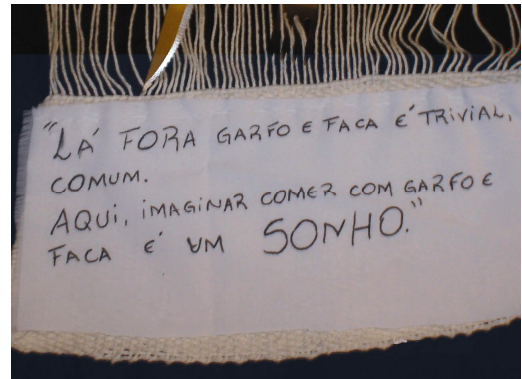 "LÁ FORA GARFO E FACA É TRIVIAL,
COMUM.
AQUI, IMAGINAR COMER COM GARFO E
FACA É UM SONHO."